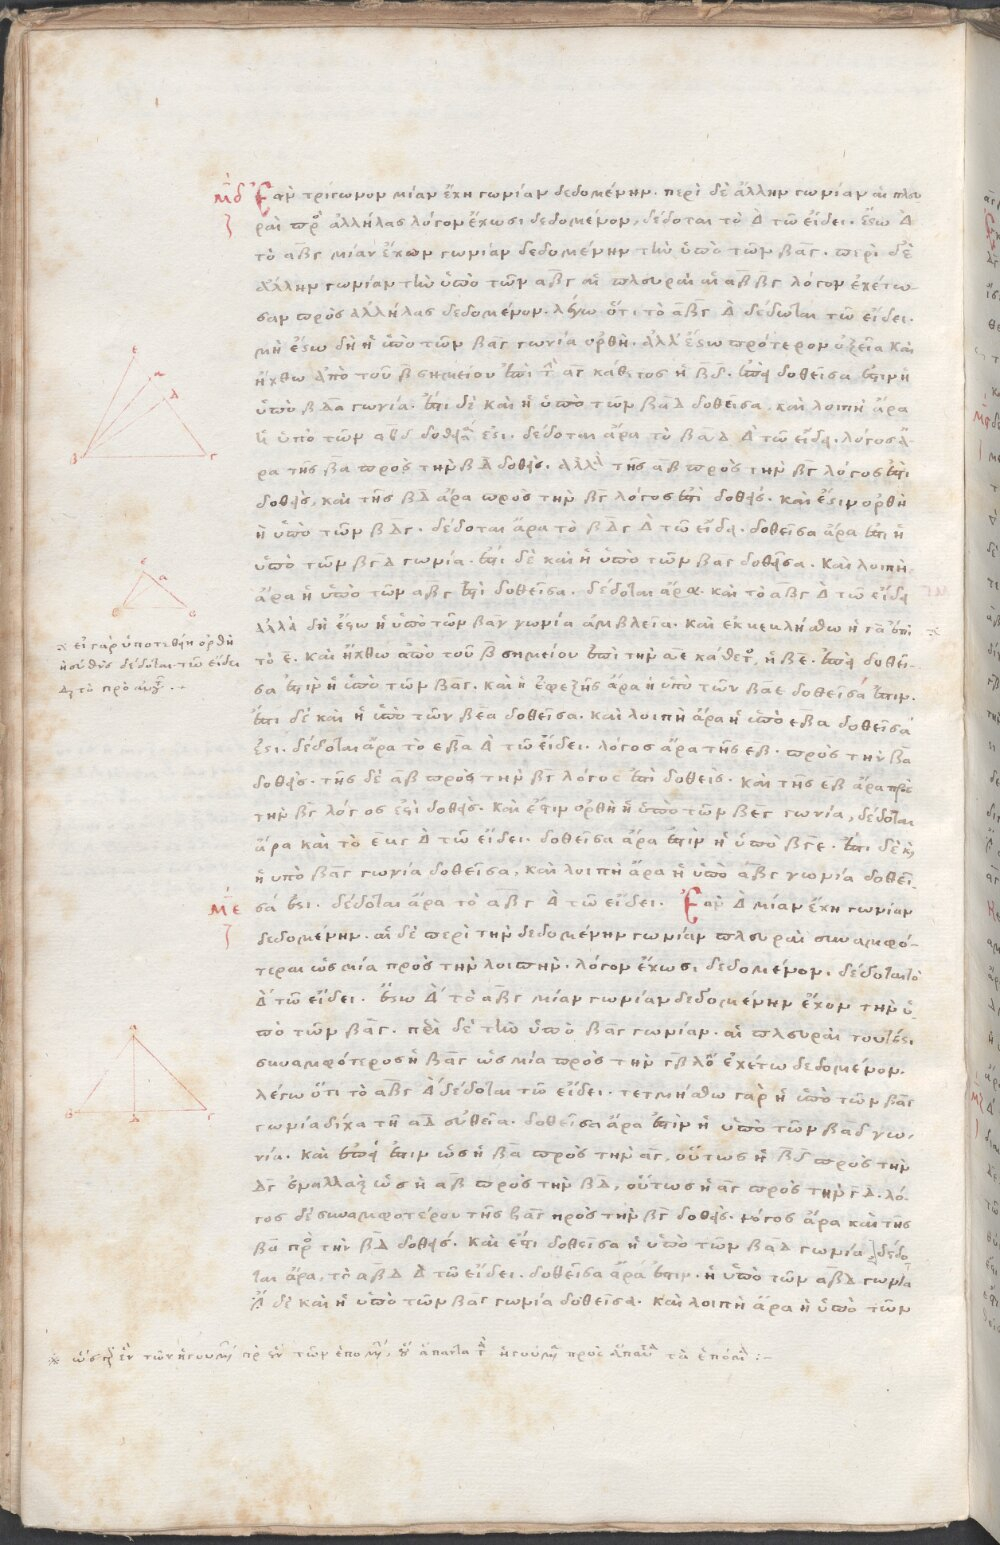 μδ Ἐὰν τρίγωνον μίαν ἔχη γωνίαν δεδομένην· περὶ δὲ ἄλλην γωνίαν αἱ πλευ
ραὶ πρὸς ἀλλήλας λόγον ἔχωσι δεδομένον, δέδοται τὸ Δ τῶ εἴδει. ἔστω Δ
τὸ αβγ μίαν ἔχων γωνίαν δεδομένην τὴν ὑπὸ τῶν βαγ. περὶ δὲ
ἄλλην γωνίαν τὴν ὑπὸ τῶν αβγ αἱ πλευραὶ αἱ αβ βγ λόγον ἐχέτω
σαν πρὸς ἀλλήλας δεδομένον. λέγω ὅτι τὸ αβγ Δ δέδωται τῶ εἴδει.
μὴ ἔστω δὴ ἡ ὑπὸ τῶν βαγ γωνία ὀρθὴ. ἀλλ' ἔστω πρότερον ὀξεῖα καὶ
ἤχθω ἀπὸ τοῦ β σημείου ἐπὶ τὴν αγ κάθετος ἡ βδ. δοθεῖσα ἐστιν ἡ
ὑπὸ βδα γωνία. ἔστι δὲ καὶ ἡ ὑπὸ τῶν βαδ δοθεῖσα, καὶ λοιπὴ ἄρα
ἡ ὑπὸ τῶν αβδ δοθεῖσα ἐστι. δέδοται ἄρα τὸ βαδ Δ τῶ εἴδει. λόγος ἄ
ρα τῆς βα πρὸς τὴν βδ δοθείς. ἀλλὰ τῆς αβ πρὸς τὴν βγ λόγος ἐστὶ
δοθείς, καὶ τῆς βδ ἄρα πρὸς τὴν βγ λόγος ἐστὶ δοθείς. καὶ ἔστιν ὀρθὴ
ἡ ὑπὸ τῶν βδγ. δέδοται ἄρα τὸ βδγ Δ τῶ εἴδει. δοθεῖσα ἄρα ἐστι ἡ
ὑπὸ τῶν βγδ γωνία. ἔστι δὲ καὶ ἡ ὑπὸ τῶν βαγ δοθεῖσα. καὶ λοιπὴ
ἄρα ἡ ὑπὸ τῶν αβγ ἐστὶ δοθεῖσα. δέδοται ἄρα καὶ τὸ αβγ Δ τῶ εἴδει
ἀλλὰ δὴ ἔστω ἡ ὑπὸ τῶν βαγ γωνία ἀμβλεῖα. καὶ ἐκβεβλήσθω ἡ γα ἐπὶ
※ εἰ γὰρ ὑποτεθείη ὀρθὴ
εὐθὺς δέδοται τῶ εἴδει
τὸ ε. καὶ ἤχθω ἀπὸ τοῦ β σημείου ἐπὶ τὴν αε κάθετος, ἡ βε. δοθεῖ
σα ἐστιν ἡ ὑπὸ τῶν βαγ. καὶ ἡ ἐφεξῆς ἄρα ἡ ὑπὸ τῶν βαε δοθεῖσά ἐστιν.
ἔστι δὲ καὶ ἡ ὑπὸ τῶν βεα δοθεῖσα. καὶ λοιπὴ ἄρα ἡ ὑπὸ εβα δοθεῖσά
ἐστι. δέδοται ἄρα τὸ εβα Δ τῶ εἴδει. λόγος ἄρα τῆς εβ πρὸς τὴν βα
δοθείς. τῆς δὲ αβ πρὸς τὴν βγ λόγος ἐστὶ δοθείς. καὶ τῆς εβ ἄρα πρὸς
τὴν βγ λόγος ἐστὶ δοθείς. καὶ ἔστιν ὀρθὴ ἡ ὑπὸ τῶν βεγ γωνία, δέδοται
ἄρα καὶ τὸ Δ τῶ εἴδει. δοθεῖσα ἄρα ἐστιν ἡ ὑπὸ βγε. ἔστι δὲ καὶ
ἡ υπὸ βαγ γωνία δοθεῖσα, καὶ λοιπὴ ἄρα ἡ ὑπὸ αβγ γωνία δοθεῖ
με σά ἐστι. δέδοται ἄρα τὸ αβγ Δ τῶ εἴδει. Ἐὰν Δ μίαν ἔχη γωνίαν
δεδομένην. αἱ δὲ περὶ τὴν δεδομένην γωνίαν πλευραὶ συναμφό
τεραι ὡς μία πρὸς τὴν λοιπὴν. λόγον ἔχωσι δεδομένον. δέδοται τὸ
Δ τῶ εἴδει. ἔστω Δ τὸ αβγ μίαν γωνίαν δεδομένην ἔχον τὴν ὑ
πὸ τῶν βαγ. περὶ δὲ τὴν ὑπὸ βαγ γωνίαν. αἱ πλευραὶ τουτέστι
συναμφότερος ἡ βαγ ὡς μία πρὸς τὴν γβ λόγον ἐχέτω δεδομένον.
λέγω ὅτι τὸ αβγ Δ δέδοται τῶ εἴδει. τετμήσθω γὰρ ἡ ὑπὸ τῶν βαγ
γωνία δίχα τῆ αδ εὐθεῖα. δοθεῖσα ἄρα ἐστιν ἡ ὑπὸ τῶν βαδ γω
νία. καὶ ἐπεί ἐστιν ὡς ἡ βα πρὸς τὴν αγ, οὕτως ἡ βδ πρὸς τὴν
δγ ἐναλλὰξ ὡς ἡ αβ πρὸς τὴν βδ, οὕτως ἡ αγ πρὸς τὴν γδ. λό
γος δὲ συναμφοτέρου τῆς βαγ πρὸς τὴν βγ δοθείς. λόγος ἄρα καὶ τῆς
βα πρὸς τὴν βδ δοθείς. καὶ ἔστι δοθεῖσα ἡ ὑπὸ τῶν βαδ γωνία, δέδο
ται ἄρα, τὸ αβδ Δ τῶ εἴδει. δοθεῖσα ἄρα ἐστιν. ἡ ὑπὸ τῶν αβδ γωνία
δὲ καὶ ἡ ὑπὸ τῶν βαγ γωνία δοθεῖσα. καὶ λοιπὴ ἄρα ἡ ὑπὸ τῶν
※ ὡς ἓν τῶν ἡγουμένων πρὸς ἓν τῶν ἑπομένων, ἅπαντα τὰ ἡγούμενα πρὸς ἅπαντα τὰ ἑπόμενα :–